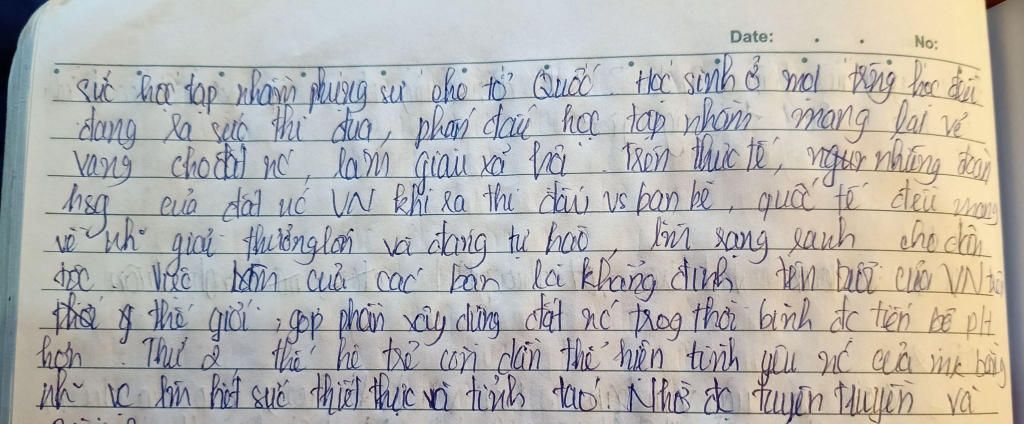 Date: . . No:
sức học tập nhằm phụng sự cho tổ Quốc. Học sinh ở mọi trường học đều
đang ra sức thi đua, phấn đấu học tập nhằm mang lại vẻ
vang cho đất nc, làm giàu xã hội. Trên thực tế, những đoàn
hsg của đất nc VN khi ra thi đấu vs bạn bè, quốc tế đều mang
về nh~ giải thưởng lớn và đáng tự hào, làm rạng ranh cho dân
tộc. Việc làm của các bạn là khẳng định tên tuổi của VN
thế giới, góp phần xây dựng đất nc trog thời bình đc tiến bộ pH
hơn. Thứ 2 thế hệ trẻ còn dần thể hiện tình yêu nc của mk bằng
nh~ vc làm hết sức thiết thực và tỉnh táo. Nhờ đc tuyên truyền và